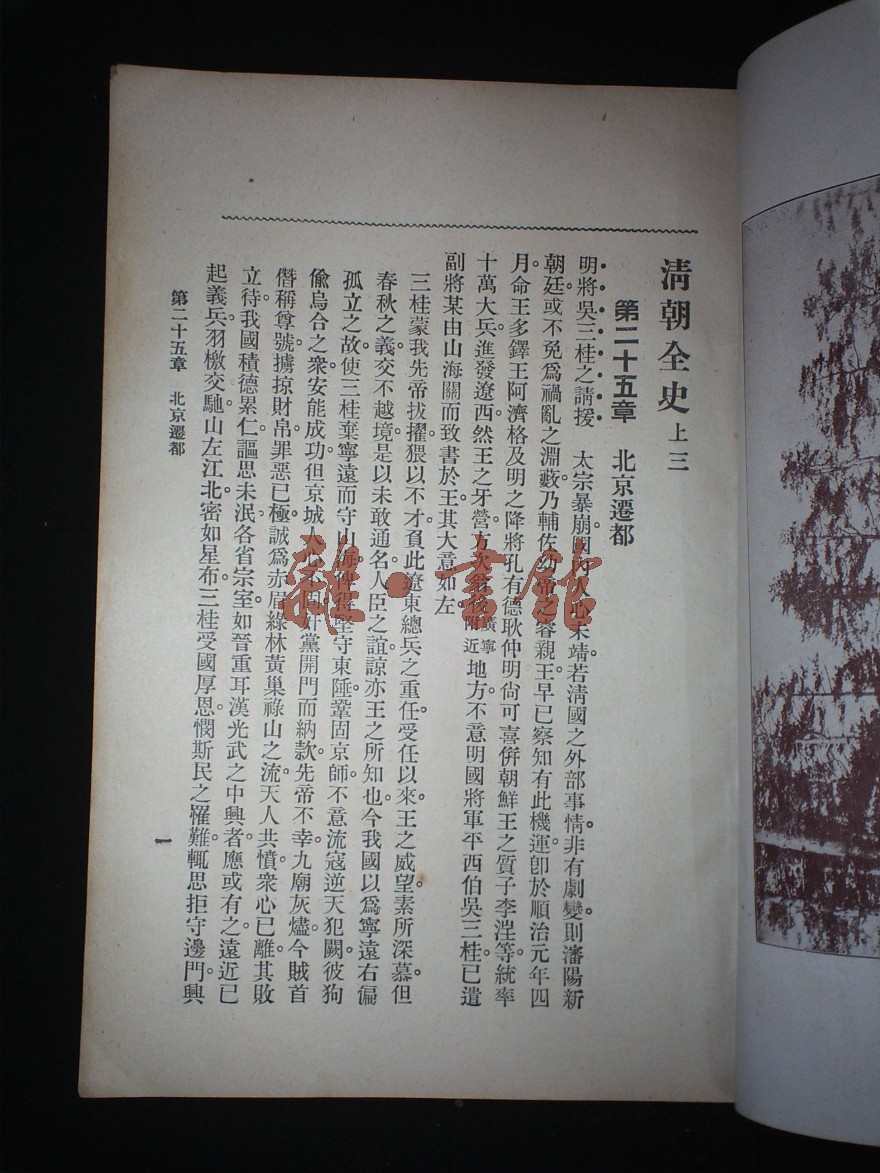 清朝全史 上三
第二十五章 北京遷都
明將吳三桂之請援 太宗暴崩。國內人心未靖。若淸國之外部事情。非有劇變。則瀋陽新
朝廷。或不免爲禍亂之淵藪。乃輔佐幼帝之睿親王。早已察知有此機運。卽於順治元年四
月。命王多鐸王阿濟格及明之降將孔有德耿仲明尙可喜。倂朝鮮王之質子李溰等。統率
十萬大兵。進發遼西。然王之牙營。方次翁後廣寧附近地方。不意明國將軍平西伯吳三桂。已遣
副將某。由山海關而致書於王。其大意如左。
三桂蒙我先帝拔擢。猥以不才。負此遼東總兵之重任。受任以來。王之威望。素所深慕。但
春秋之義。交不越境。是以未敢通名。人臣之誼。諒亦王之所知也。今我國以爲寧遠右偏
孤立之故。使三桂棄寧遠而守山海。俾得堅守東陲。鞏固京師。不意流寇逆天犯闕。彼狗
偸烏合之衆。安能成功。但京城人心不固。奸黨開門而納款。先帝不幸。九廟灰燼。今賊首
僭稱尊號。擄掠財帛。罪惡已極。誠爲赤眉綠林黃巢祿山之流。天人共憤。衆心已離。其敗
立待。我國積德累仁。謳思未泯。各省宗室。如晉重耳漢光武之中興者。應或有之。遠近已
起義兵。羽檄交馳。山左江北。密如星布。三桂受國厚恩。憫斯民之罹難。輒思拒守邊門。興
第二十五章 北京遷都
一
雜·書館